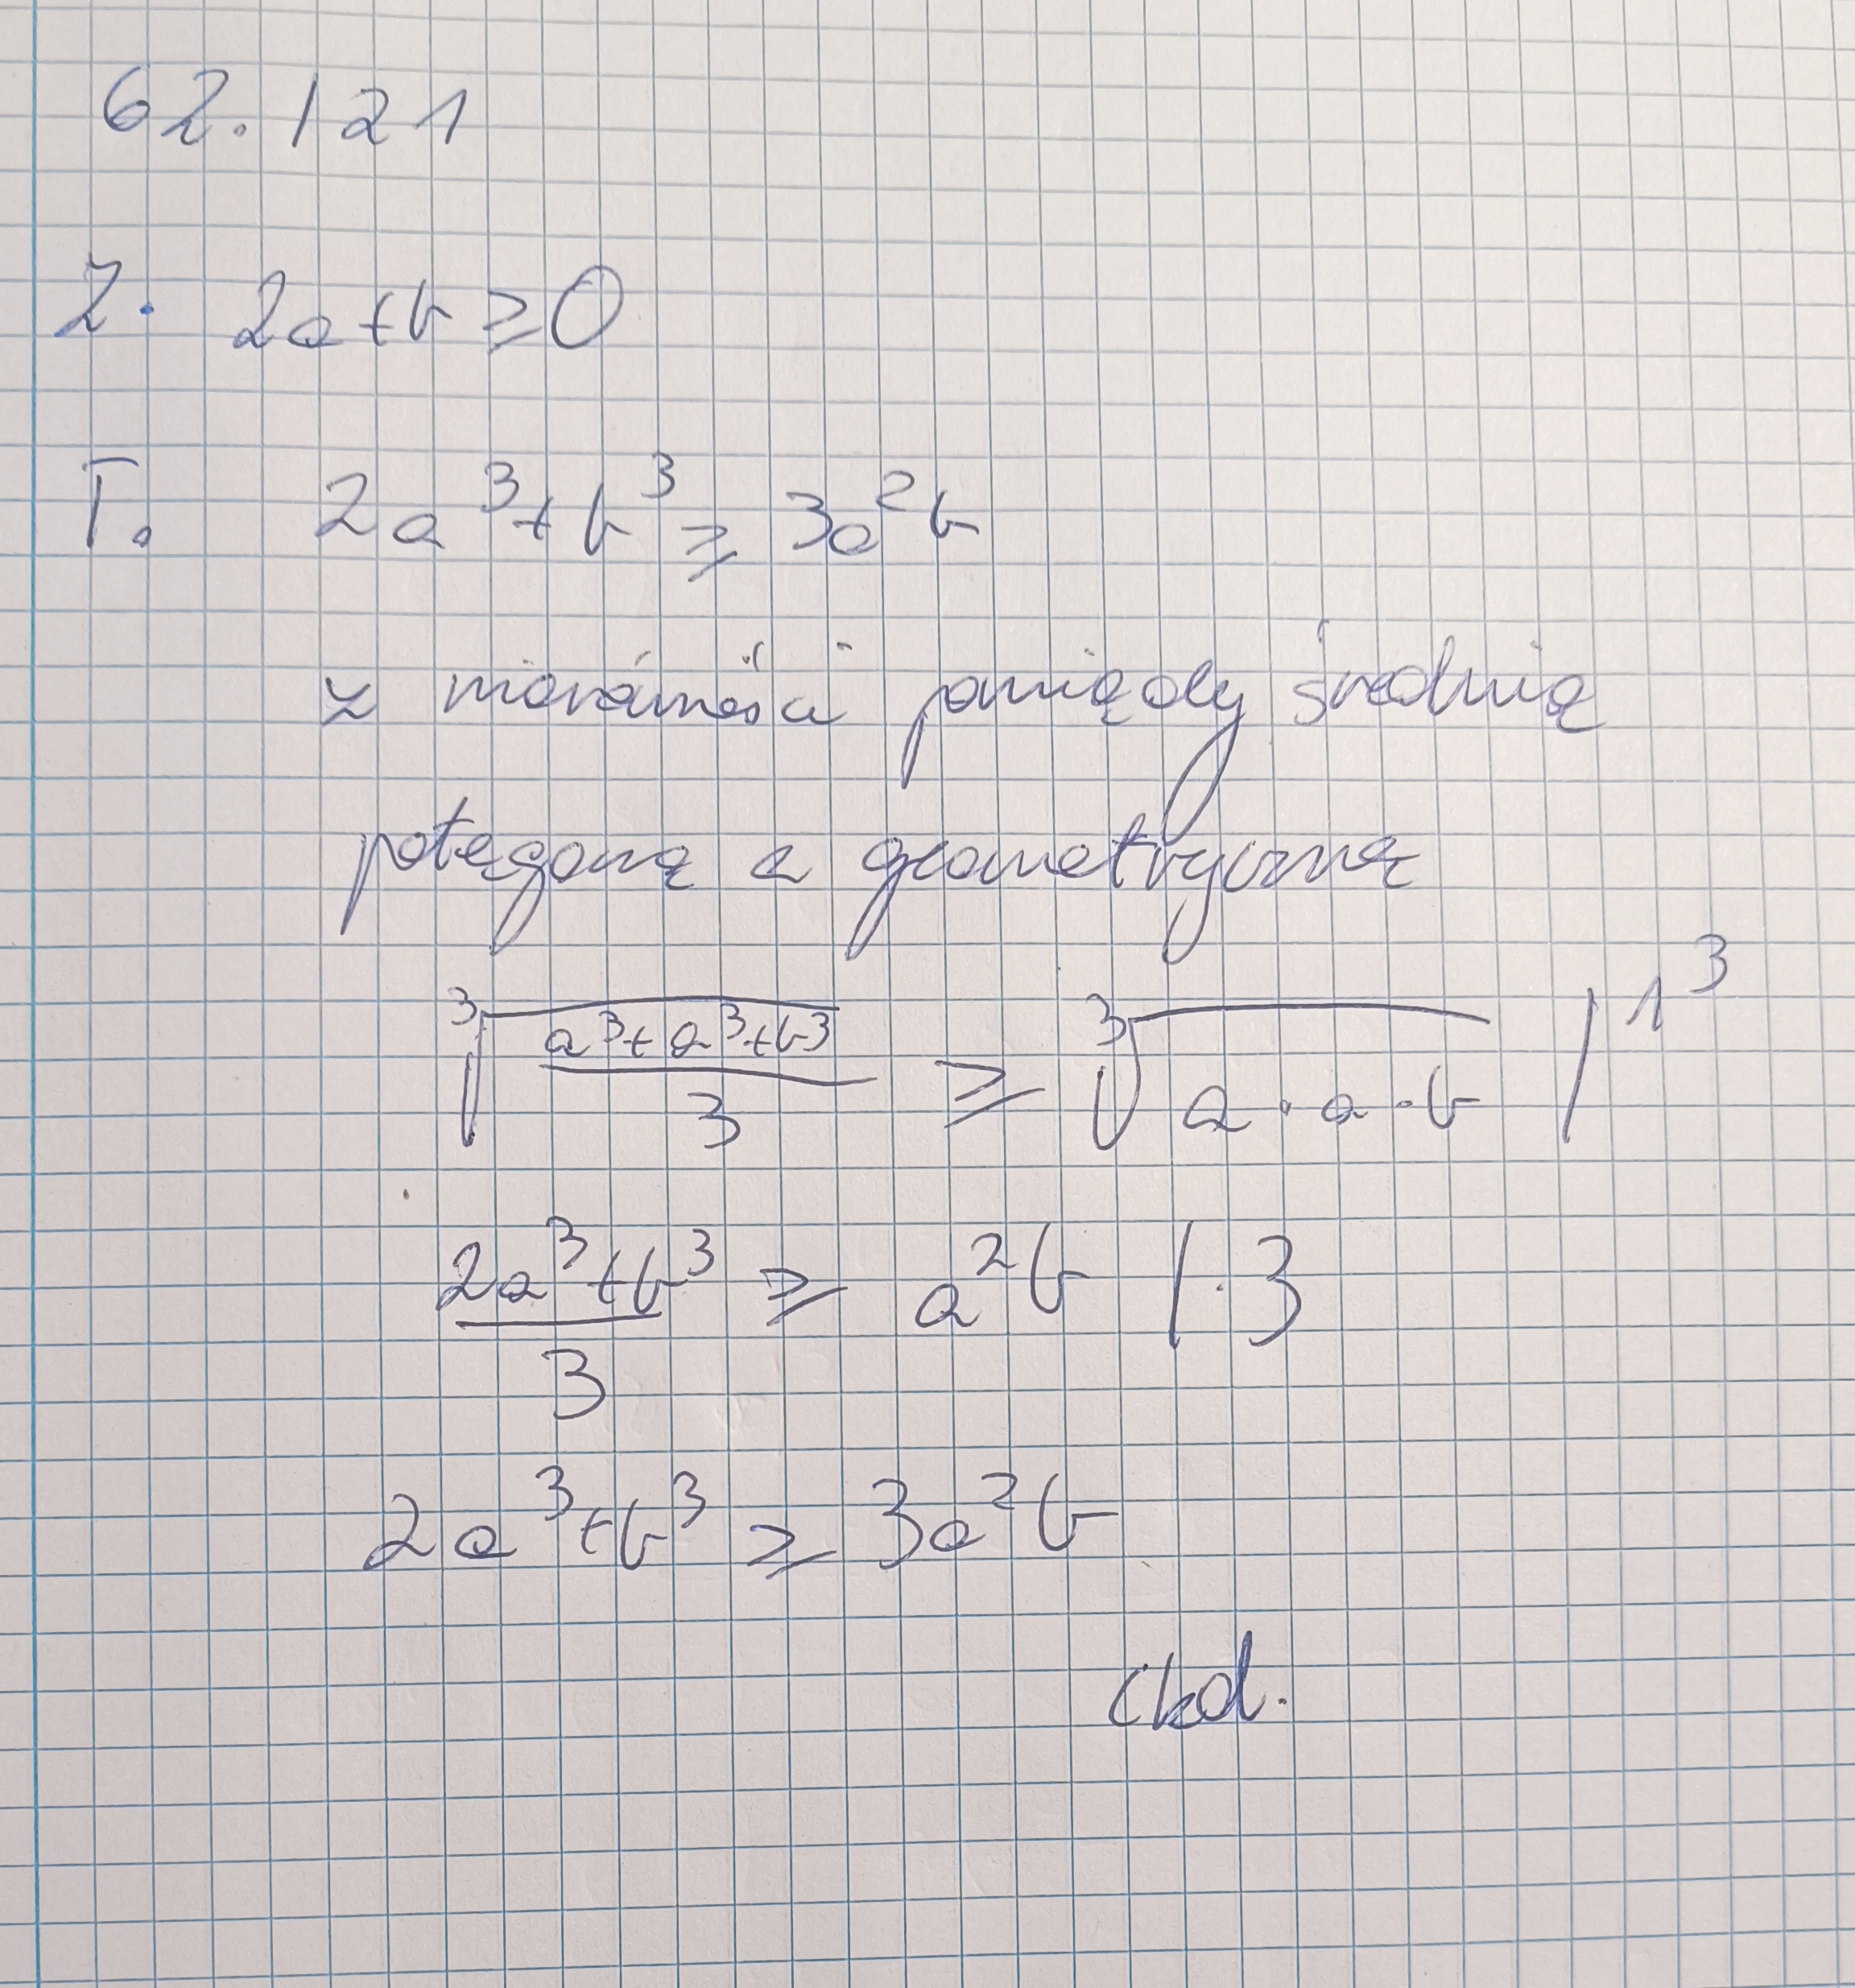 62.121
Z. 2a+b ≥ 0
T. 2a³+b³ ≥ 3a²b
z nierówności pomiędzy średnią
potęgową a geometryczną
∛((a³+a³+b³)/3) ≥ ∛(a·a·b) /^3
(2a³+b³)/3 ≥ a²b /·3
2a³+b³ ≥ 3a²b
ckd.